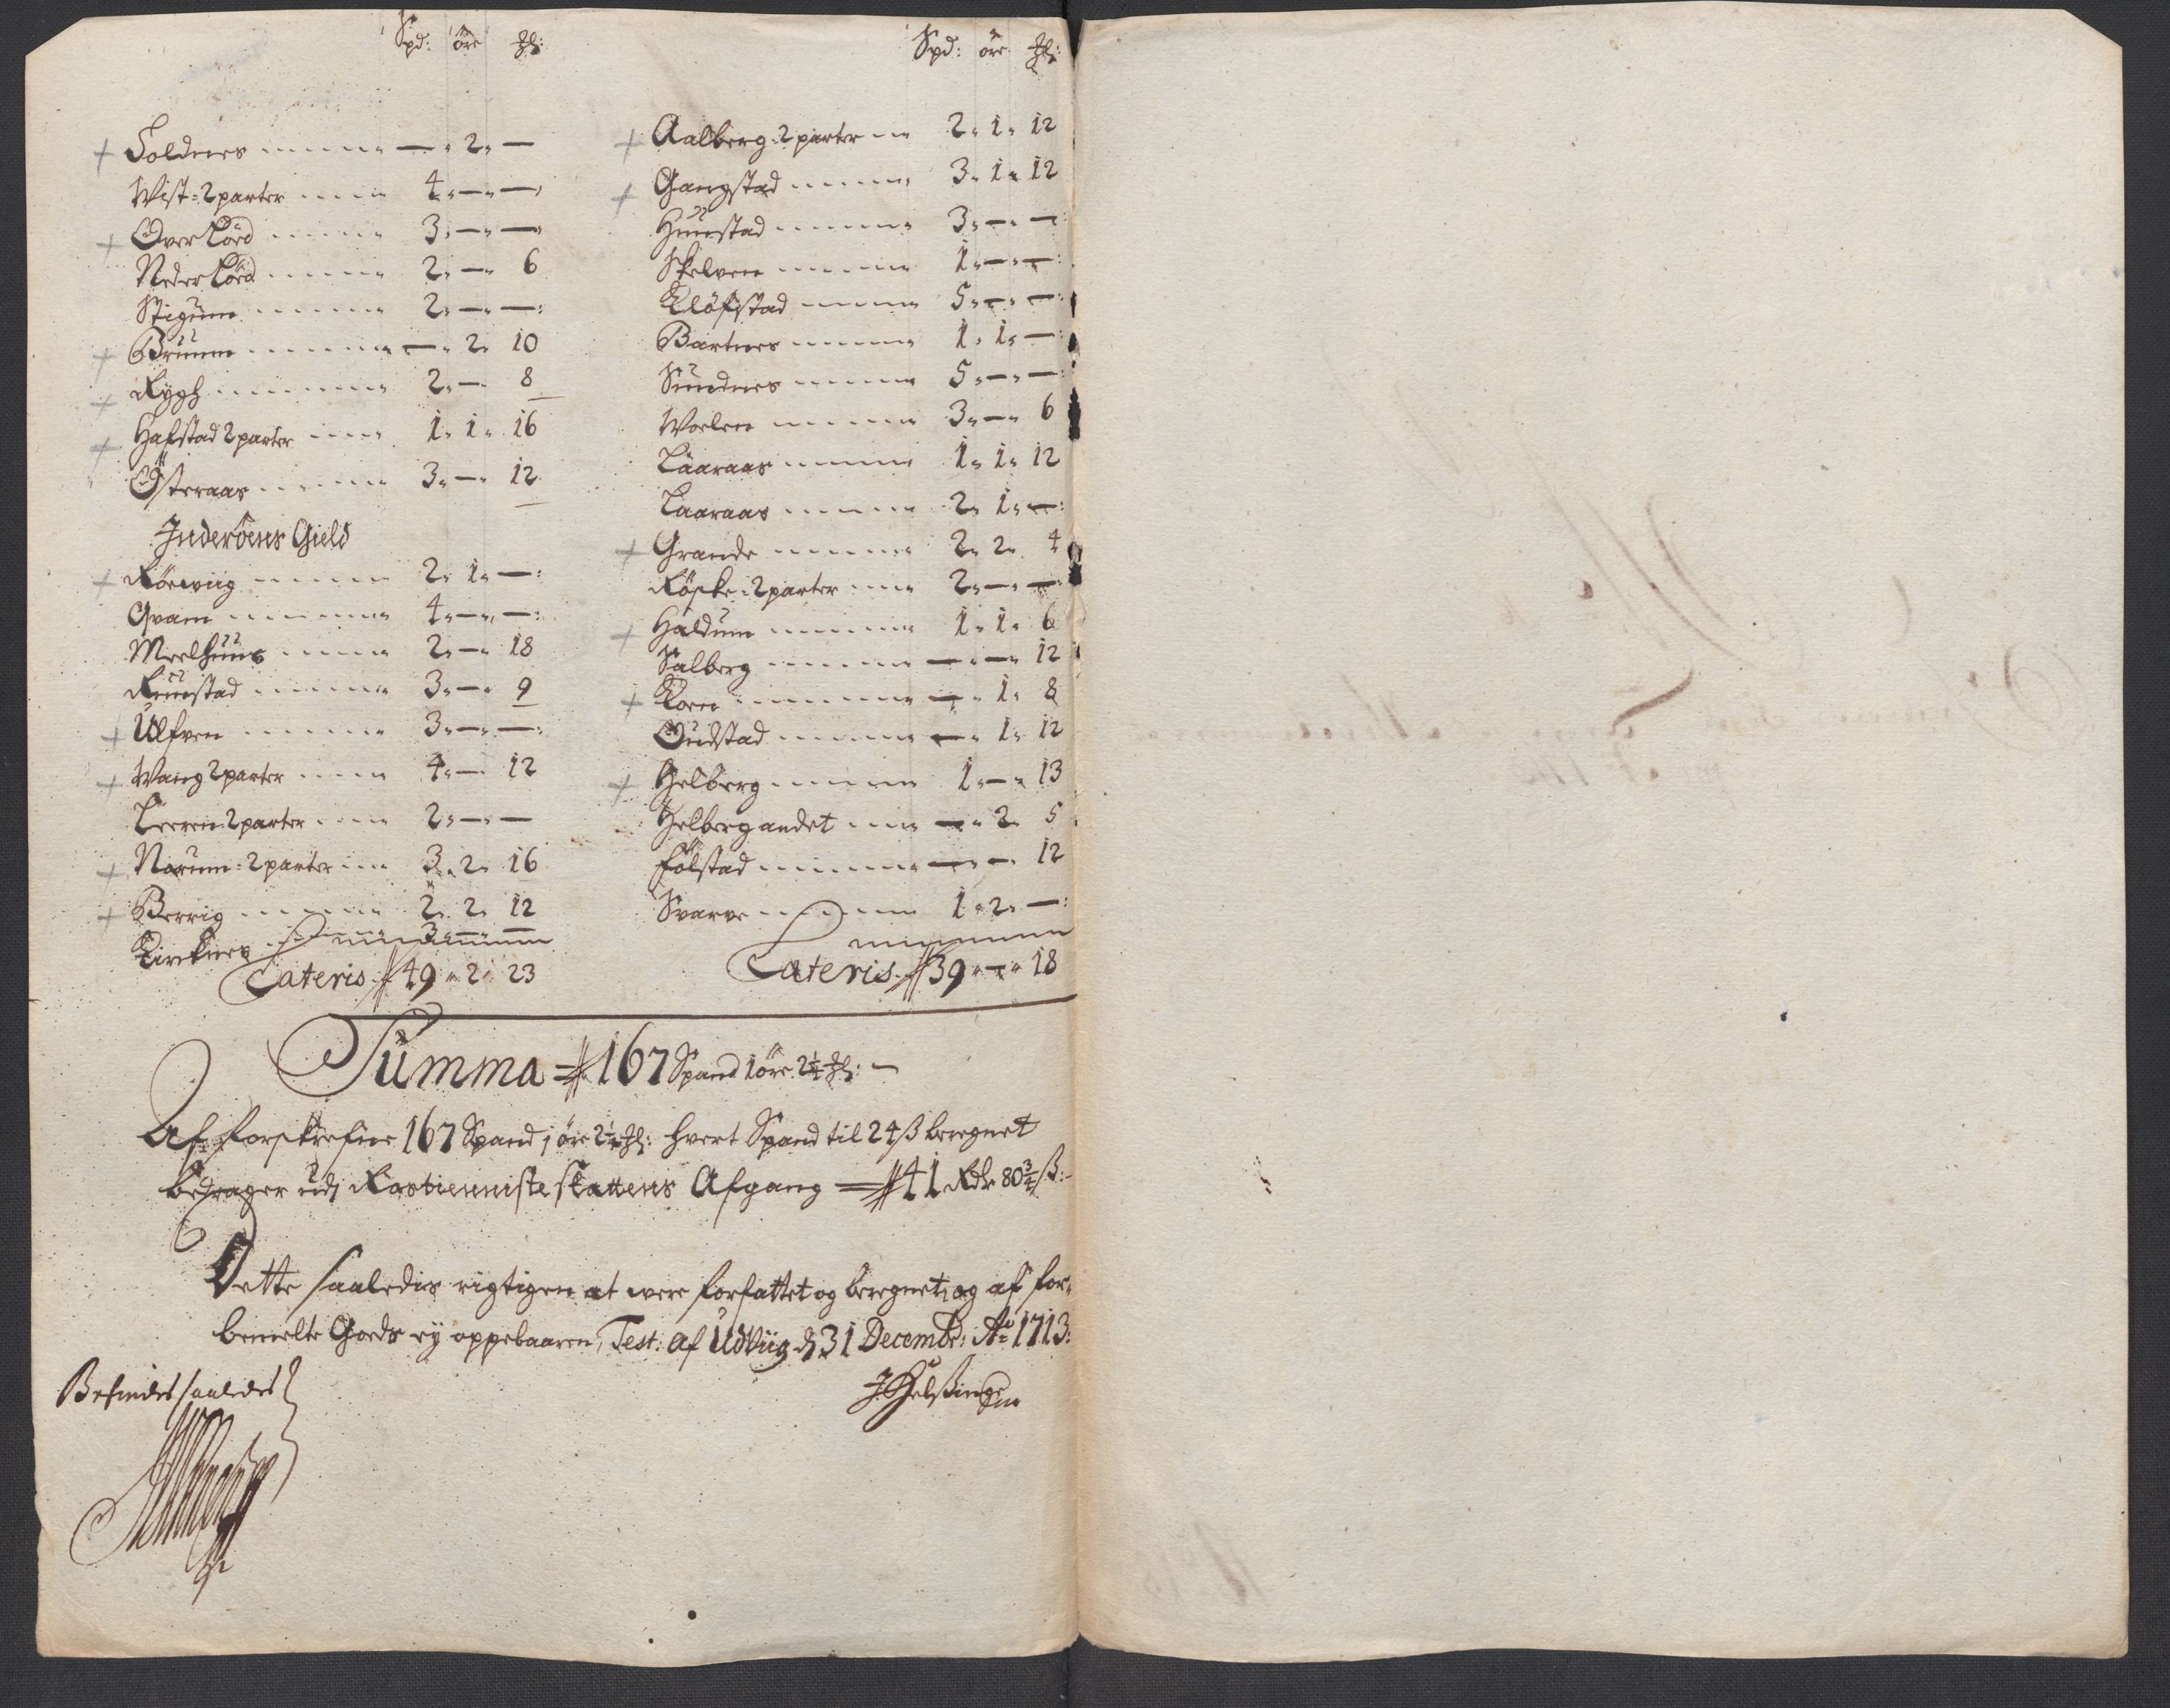 Spd: öre
Soldnes — 2 —
Wist: 2 parter 4 — —
Over Lörd 3 — —
Neder Lörd 2 — 6
Stigum 2 — —
Brunn — 2 10
Rygh 2 — 8
Hafstad 2 parter 1 1 16
Österaas 3 — 12
Inderöens Gield
Rörwiig 2 1 —
Qvam 4 — —
Meelhuus 2 — 18
Ruustad 3 — 9
Ulfven 3 — —
Wang 2 parter 4 — 12
Leeren 2 parter 2 — —
Norum: 2 parter 3 2 16
Berrig 2 2 12
Kirknes 3 — —
Lateris 49 2 23
Spd: öre
Aalberg 2 parter 2 1 12
Gangstad 3 1 12
Huustad 3 — —
Skelven 1 — —
Klöfstad 5 — —
Bartnes 1 1 —
Sundnes 5 — —
Woelen 3 — 6
Laaraas 1 1 12
Laaraas 2 1 —
Grande 2 2 4
Röske: 2 parter 2 — —
Haldum 1 1 6
Salberg — — 12
Koen — 1 8
Oudstad — 1 12
Helberg 1 — 13
Helberg andet — 2 5
Fölstad — — 12
Svarve 1 2 —
Lateris 39 — 18
Summa 167 Spand 1 öre 2¼
Af forskrefne 167 Spand 1 öre 2¼ hvert Spand til 24 ß beregnet
bedrager udj Rostienniste skattens Afgang 41 Rdr 80¾ ß:
Dette saaledis rigtigen at were forfattet og beregnet, og af for-
bemelte Goeds ey oppebaaren, Test. Af Udviig d 31 Decembr: Ao 1713:
Befindes saaledes